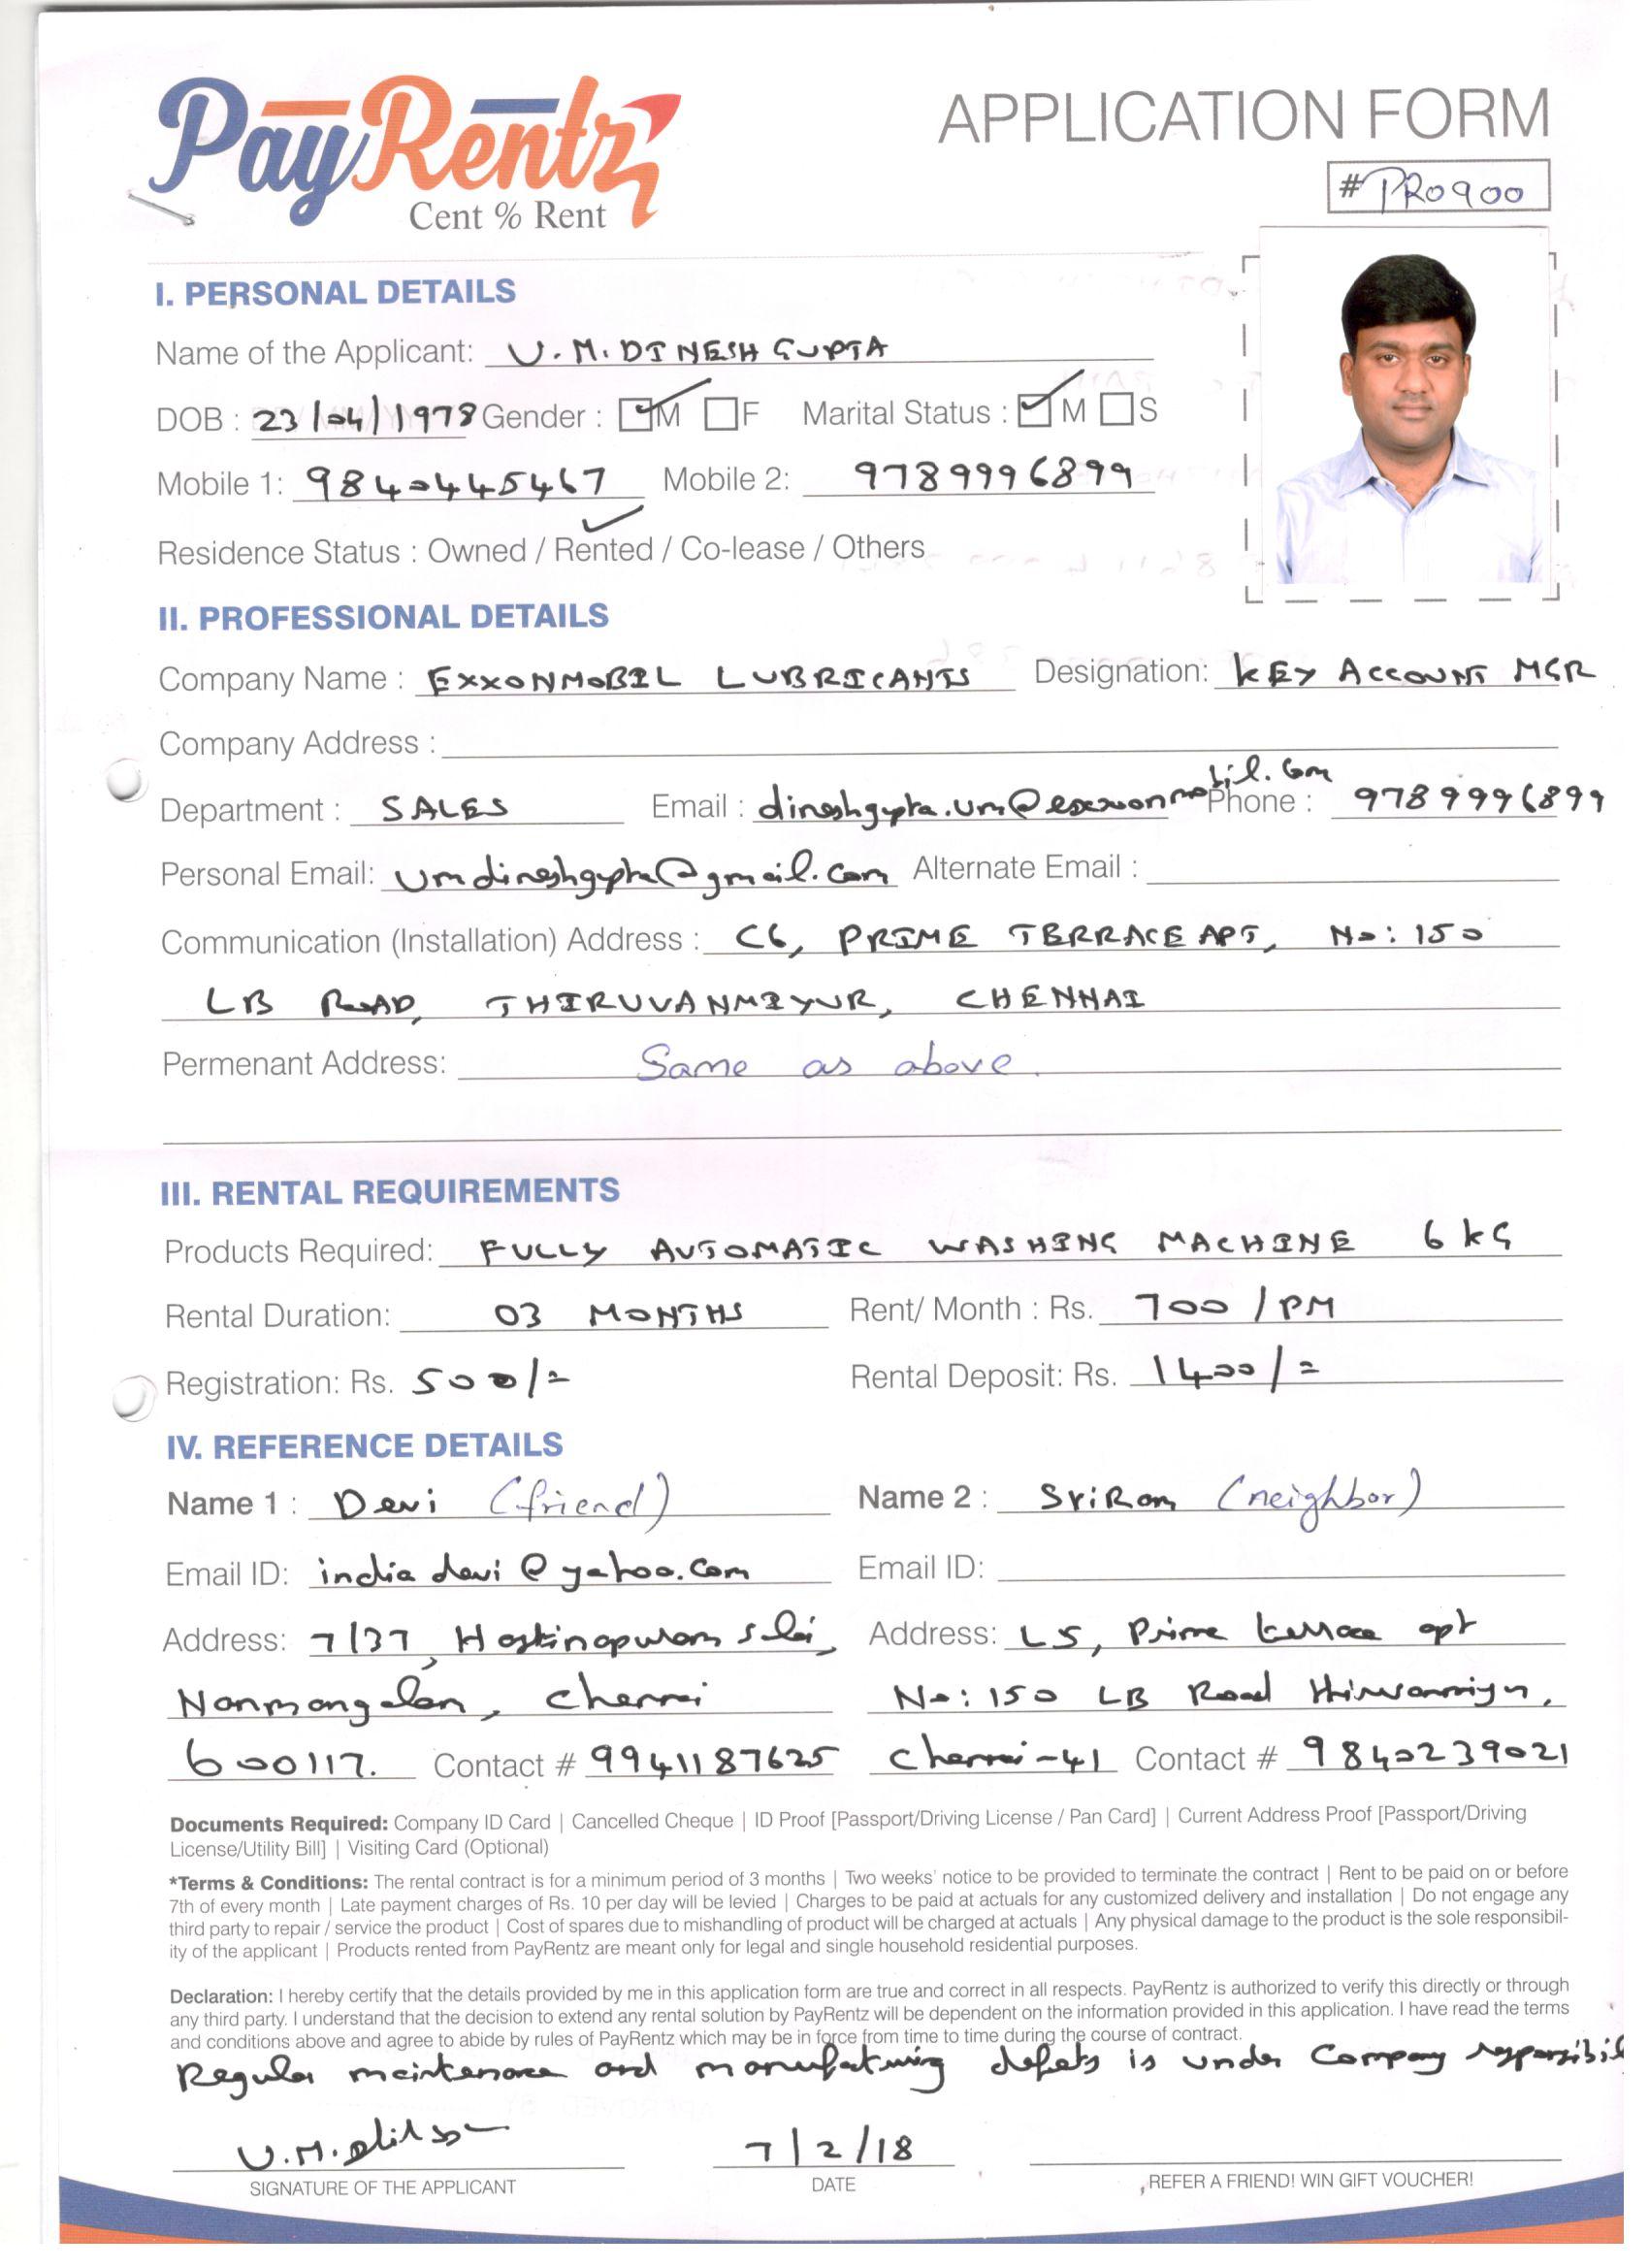 PayRentz
Cent % Rent
APPLICATION FORM
#PR0900
I. PERSONAL DETAILS
Name of the Applicant: U.M.DINESH GUPTA
DOB : 23/04/1978 Gender : M F Marital Status : M S
Mobile 1: 9840445467 Mobile 2: 9789996899
Residence Status : Owned / Rented / Co-lease / Others
II. PROFESSIONAL DETAILS
Company Name : EXXONMOBIL LUBRICANTS Designation: KEY ACCOUNT MGR
Company Address :
Department : SALES Email : dineshgupta.um@exxonmobil.com Phone : 9789996899
Personal Email: umdineshgupta@gmail.com Alternate Email :
Communication (Installation) Address : C6, PRIME TERRACE APT, No: 150
LB ROAD, THIRUVANMIYUR, CHENNAI
Permenant Address: Same as above.
III. RENTAL REQUIREMENTS
Products Required: FULLY AUTOMATIC WASHING MACHINE 6 KG
Rental Duration: 03 MONTHS Rent/ Month : Rs. 700 /PM
Registration: Rs. 500/= Rental Deposit: Rs. 1400/=
IV. REFERENCE DETAILS
Name 1 : Devi (friend) Name 2 : SriRam (neighbor)
Email ID: india devi@yahoo.com Email ID:
Address: 7/37, Hastinapuram Salai, Address: L5, Prime terrace apt
Nanmangalam, Chennai No: 150 LB Road
600117. Contact # 9941187625 Chennai-41 Contact # 9840239021
Documents Required: Company ID Card | Cancelled Cheque | ID Proof [Passport/Driving License / Pan Card] | Current Address Proof [Passport/Driving
License/Utility Bill] | Visiting Card (Optional)
*Terms & Conditions: The rental contract is for a minimum period of 3 months | Two weeks' notice to be provided to terminate the contract | Rent to be paid on or before
7th of every month | Late payment charges of Rs. 10 per day will be levied | Charges to be paid at actuals for any customized delivery and installation | Do not engage any
third party to repair / service the product | Cost of spares due to mishandling of product will be charged at actuals | Any physical damage to the product is the sole responsibil-
ity of the applicant | Products rented from PayRentz are meant only for legal and single household residential purposes.
Declaration: I hereby certify that the details provided by me in this application form are true and correct in all respects. PayRentz is authorized to verify this directly or through
any third party. I understand that the decision to extend any rental solution by PayRentz will be dependent on the information provided in this application. I have read the terms
and conditions above and agree to abide by rules of PayRentz which may be in force from time to time during the course of contract.
Regular maintenance and manufaturing defets is under Company responsibil
U.M.
7/2/18
SIGNATURE OF THE APPLICANT DATE REFER A FRIEND! WIN GIFT VOUCHER!